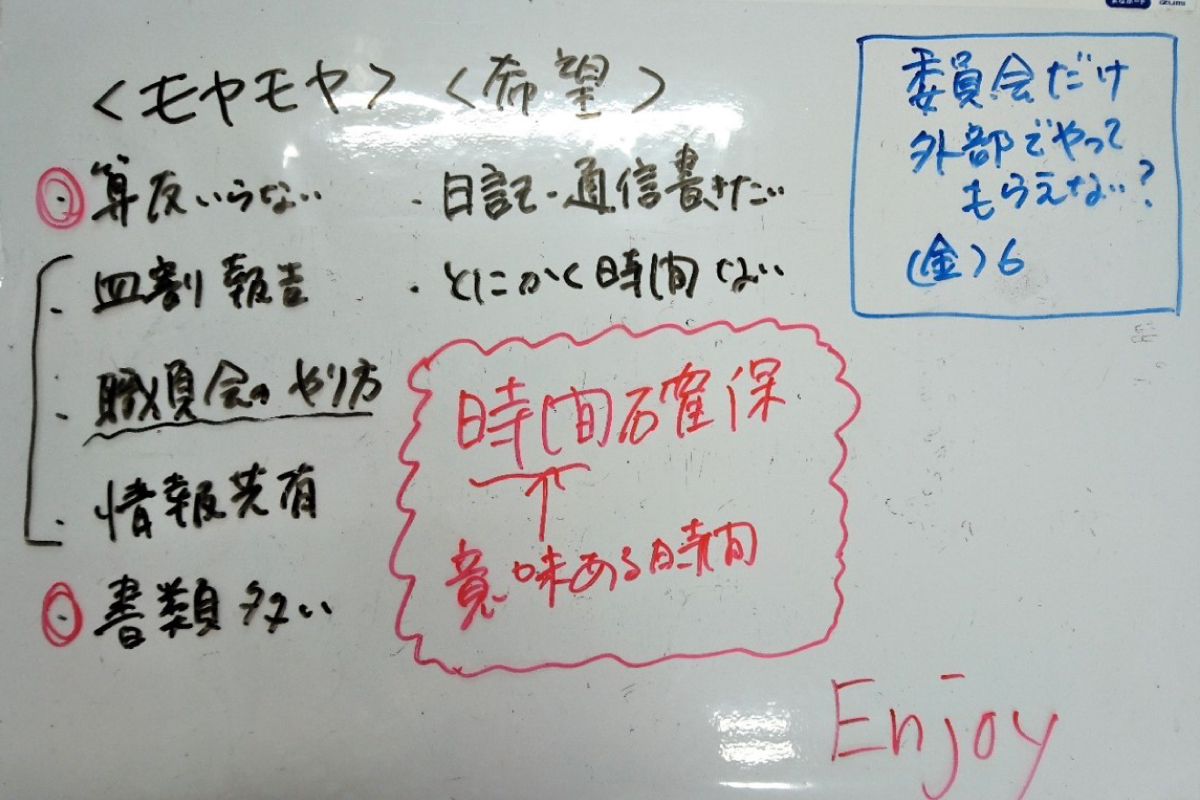 <モヤモヤ>
・算反いらない
・皿割報告
・職員会のやり方
・情報共有
・書類多い
<希望>
・日記・通信書きたい
・とにかく時間ない
時間確保
↑
意味ある時間
委員会だけ
外部でやって
もらえない?
(金)6
Enjoy